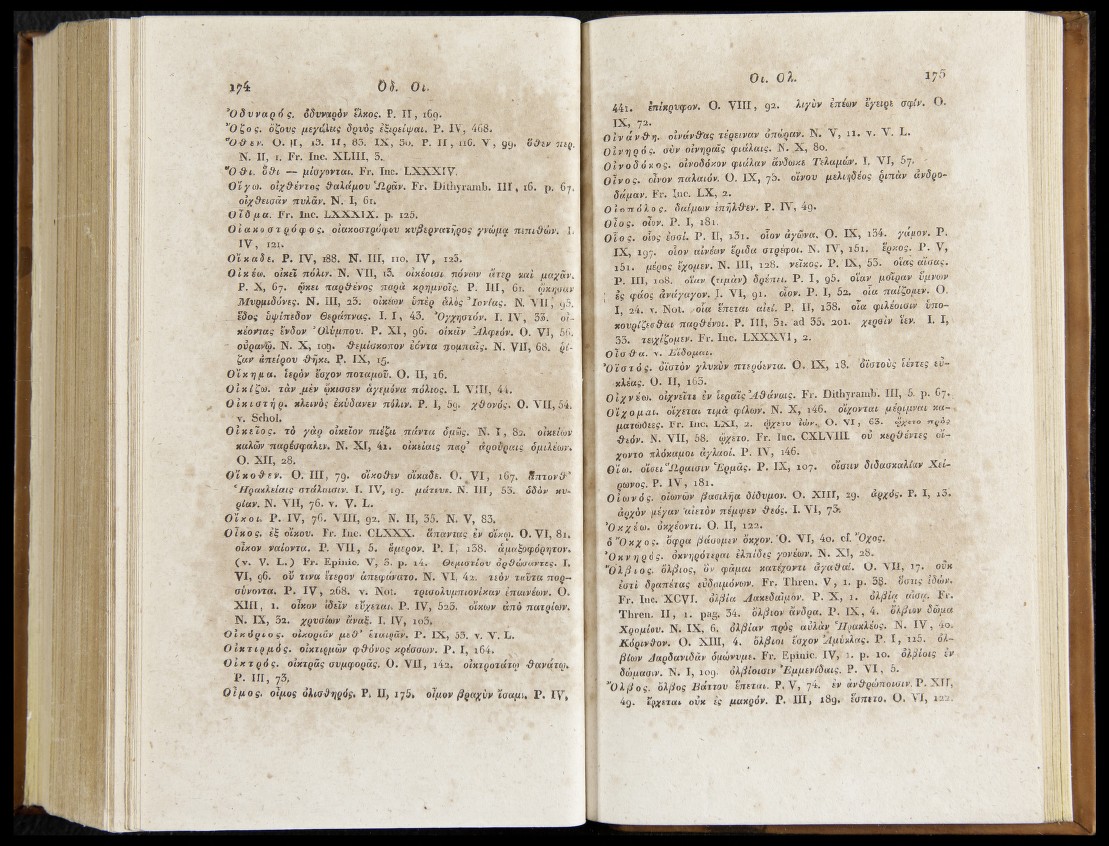 174 Ὀδ. Οι.
Ὀδυναρός. ὀδυναρὸν ἕλκος. P. II, 169.
Ὄζος. ὄζους μεγάλας δρυὸς ἐξερείψαι. P. IV, 468.
Ὅθεν. O. II, 13. II, 83. IX, 50. P. II, 116. V, 99. ὅθεν περ.
N. II, 1. Fr. Inc. XLIII, 5.
Ὅθι. ὅθι — μίσγονται. Fr. Inc. LXXXIV.
Οἴγω. οἰχθέντος θαλάμου Ὡρᾶν. Fr. Dithyramb. III, 16. p. 67.
οἰχθεισᾶν πυλᾶν. N. I, 61.
Οἶδμα. Fr. Inc. LXXXIX. p. 125.
Οἰακοστρόφος. οἰακοστρόφου κυβερνατῆρος γνώμᾳ πεπιθών. I.
IV, 121.
Οἴκαδε. P. IV, 188. N. III, 110. IV, 123.
Οἰκέω. οἰκεῖ πόλιν. N. VII, 13. οἰκέοισι πόνων ἄτερ καὶ μαχᾶν.
P. X, 67. ᾤκει παρθένος παρὰ κρημνοῖς. P. III, 61. ᾤκησαν
Μυρμιδόνες. N. III, 23. οἰκέων ὑπὲρ ἁλὸς Ἰονίας. N. VII, 95.
ἕδος ὑψίπεδον Θεράπνας. I. I, 43. Ὀγχηστόν. I. IV, 33. οἰ-
κέοντας ἔνδον Ὀλύμπου. P. XI, 96. οἰκεῖν Ἀλφεόν. O. VI, 56.
οὐρανῷ. N. X, 109. θεμίσκοπον ἐόντα πομπαῖς. N. VII, 68. ῥί-
ζαν ἀπείρου θῆκε. P. IX, 15.
Οἴκημα. ἱερὸν ἔσχον ποταμοῦ. O. II, 16.
Οἰκίζω. τὰν μὲν ᾤκισσεν ἁγεμόνα πόλιος. I. VIII, 41.
Οἰκιστήρ. κλεινὸς ἐκύδανεν πόλιν. P. I, 59. χθονός. O. VII, 54.
v. Schol.
Οἰκεῖος. τὸ γὰρ οἰκεῖον πιέζει πάντα ὁμῶς. N. I, 82. οἰκείων
καλῶν παρέσφαλεν. N. XI, 41. οἰκείαις παρ' ἀρούραις ὁμιλέων.
O. XII, 28.
Οἴκοθεν. O. III, 79. οἴκοθεν οἴκαδε. O. VI, 167. ἅπτονθ'
Ἡρακλείαις στάλαισιν. I. IV, 19. μάτευε. N. III, 53. ὁδὸν κυ-
ρίαν. N. VII, 76. v. V. L.
Οἴκοι. P. IV, 76. VIII, 92. N. II, 35. N. V, 83.
Οἶκος. ἐξ οἴκου. Fr. Inc. CLXXX. ἅπαντας ἐν οἴκῳ. O. VI, 81.
οἶκον ναίοντα. P. VII, 5. ἅμερον. P. I, 138. ἁμαξοφόρητον.
(v. V. L.) Fr. Epinic. V, 3. p. 14. Θεμιστίου ὀρθώσαντες. I.
VI, 96. οὔ τινα ἕτερον ἀπεφάνατο. N. VI, 42. τεὸν ταῦτα πορ-
σύνοντα. P. IV, 268. v. Not. τρισολυμπιονίκαν ἐπαινέων. O.
XIII, 1. οἶκον ἰδεῖν εὔχεται. P. IV, 523. οἴκων ἀπὸ πατρίων.
N. IX, 32. χρυσέων ἄναξ. I. IV, 103.
Οἰκόριος. οἰκοριᾶν μεθ' ἑταιρᾶν. P. IX, 33. v. V. L.
Οἰκτιρμός. οἰκτιρμῶν φθόνος κρέσσων. P. I, 164.
Οἰκτρός. οἰκτρᾶς συμφορᾶς. O. VII, 142. οἰκτροτάτῳ θανάτῳ.
P. III, 73.
Οἶμος. οἶμος ὀλισθηρός. P. II, 175. οἶμον βραχὺν ἴσαμι. P. IV,
Οι. Ολ. 175
441. ἐπίκρυφον. O. VIII, 92. λιγὺν ἐπέων ἔγειρε σφίν. O.
IX, 72.
Οἰνάνθη. οἰνάνθας τέρειναν ὀπώραν. N. V, 11. v. V. L.
Οἰνηρός. σὺν οἰνηραῖς φιάλαις. N. X, 80.
Οἰνοδόκος. οἰνοδόκον φιάλαν ἄνδωκε Τελαμών. I. VI, 57.
Οἶνος. οἶνον παλαιόν. O. IX, 73. οἴνου μελιηδέος ῥιπὰν ἀνδρο-
δάμαν. Fr. Inc. LX, 2.
Οἰοπόλος. δαίμων ἐπῆλθεν. P. IV, 49.
Οἶος. οἶον. P. I, 181.
Οἷος. οἷος ἐσσί. P. II, 131. οἷον ἀγῶνα. O. IX, 134. γάμον. P.
IX, 197. οἷον αἰνέων ἔριδα στρέφοι. N. IV, 151. ἔρκος. P. V,
151. μέρος ἔχομεν. N. III, 128. νεῖκος. P. IX, 53. οἵας αἴσας.
P. III, 108. οἵαν (τιμὰν) δρέπει. P. I, 95. οἵαν μοῖραν ὕμνων
ἐς φάος ἀνάγαγον. I. VI, 91. οἷον. P. I, 52. οἷα παίζομεν. O.
I, 24. v. Not. οἷα ἕπεται αἰεί. P. II, 138. οἷα φιλέοισιν ὑπο-
κουρίζεσθαι παρθένοι. P. III, 31. ad 35. 201. χερσὶν ἱεν. I. I,
33. τειχίζομεν. Fr. Inc. LXXXVI, 2.
Οἶσθα. v. Εἴδομαι.
Ὀϊστός. ὀϊστὸν γλυκὺν πτερόεντα. O. IX, 18. ὀϊστοὺς ἱέντες εὐ-
κλέας. O. II, 163.
Οἰχνέω. οἰχνεῖτε ἐν ἱεραῖς Ἀθάναις. Fr. Dithyramb. III, 5. p. 67.
Οἴχομαι. οἴχεται τιμὰ φίλων. N. X, 146. οἴχονται μέριμναι κα-
ματώδεες. Fr. Inc. LXI, 2. ᾤχετο ἰών. O. VI, 63. ᾤχετο πρὸς
θεόν. N. VII, 58. ᾤχετο. Fr. Inc. CXLVIII. οὐ κερθέντες οἴ-
χοντο πλόκαμοι ἀγλαοί. P. IV, 146.
Οἴω. οἴσει Ὥραισιν Ἑρμᾶς. P. IX, 107. οἴσειν διδασκαλίαν Χεί-
ρωνος. P. IV, 181.
Οἰωνός. οἰωνῶν βασιλῆα δίδυμον. O. XIII, 29. ἀρχός. P. I, 13.
ἀρχὸν μέγαν αἰετὸν πέμψεν θεός. I. VI, 73.
Ὀκχέω. ὀκχέοντι. O. II, 122.
ὁ Ὄκχος. ὄφρα βάσομεν ὄκχον. O. VI, 40. cf. Ὄχος.
Ὀκνηρός. ὀκνηρότεραι ἐλπίδες γονέων. N. XI, 28.
Ὄλβιος. ὄλβιος, ὃν φᾶμαι κατέχοντι ἀγαθαί. O. VII, 17. οὐκ
ἐστὶ δραπέτας εὐδαιμόνων. Fr. Thren. V, 1. p. 38. ὅστις ἰδών.
Fr. Inc. XCVI. ὀλβία Λακεδαῖμον. P. X, 1. ὀλβίᾳ αἴσᾳ. Fr.
Thren. II, 1. pag. 34. ὄλβιον ἄνδρα. P. IX, 4. ὄλβιον δῶμα
Χρομίου. N. IX, 6. ὀλβίαν πρὸς αὐλὰν Ἡρακλέος. N. IV, 40.
Κόρινθον. O. XIII, 4. ὄλβιοι ἔσχον Ἀμύκλας. P. I, 125. ὀλ-
βίων Δαρδανιδᾶν ὁμώνυμε. Fr. Epinic. IV, 1. p. 10. ὀλβίοις ἐν
δώμασιν. N. I, 109. ὀλβίοισιν Ἐμμενίδαις. P. VI, 5.
Ὄλβος. ὄλβος Βάττου ἕπεται. P. V, 74. ἐν ἀνθρώποισιν. P. XII,
49. ἔρχεται οὐκ ἐς μακρόν. P. III, 189. ἕσπετο. O. VI, 122.